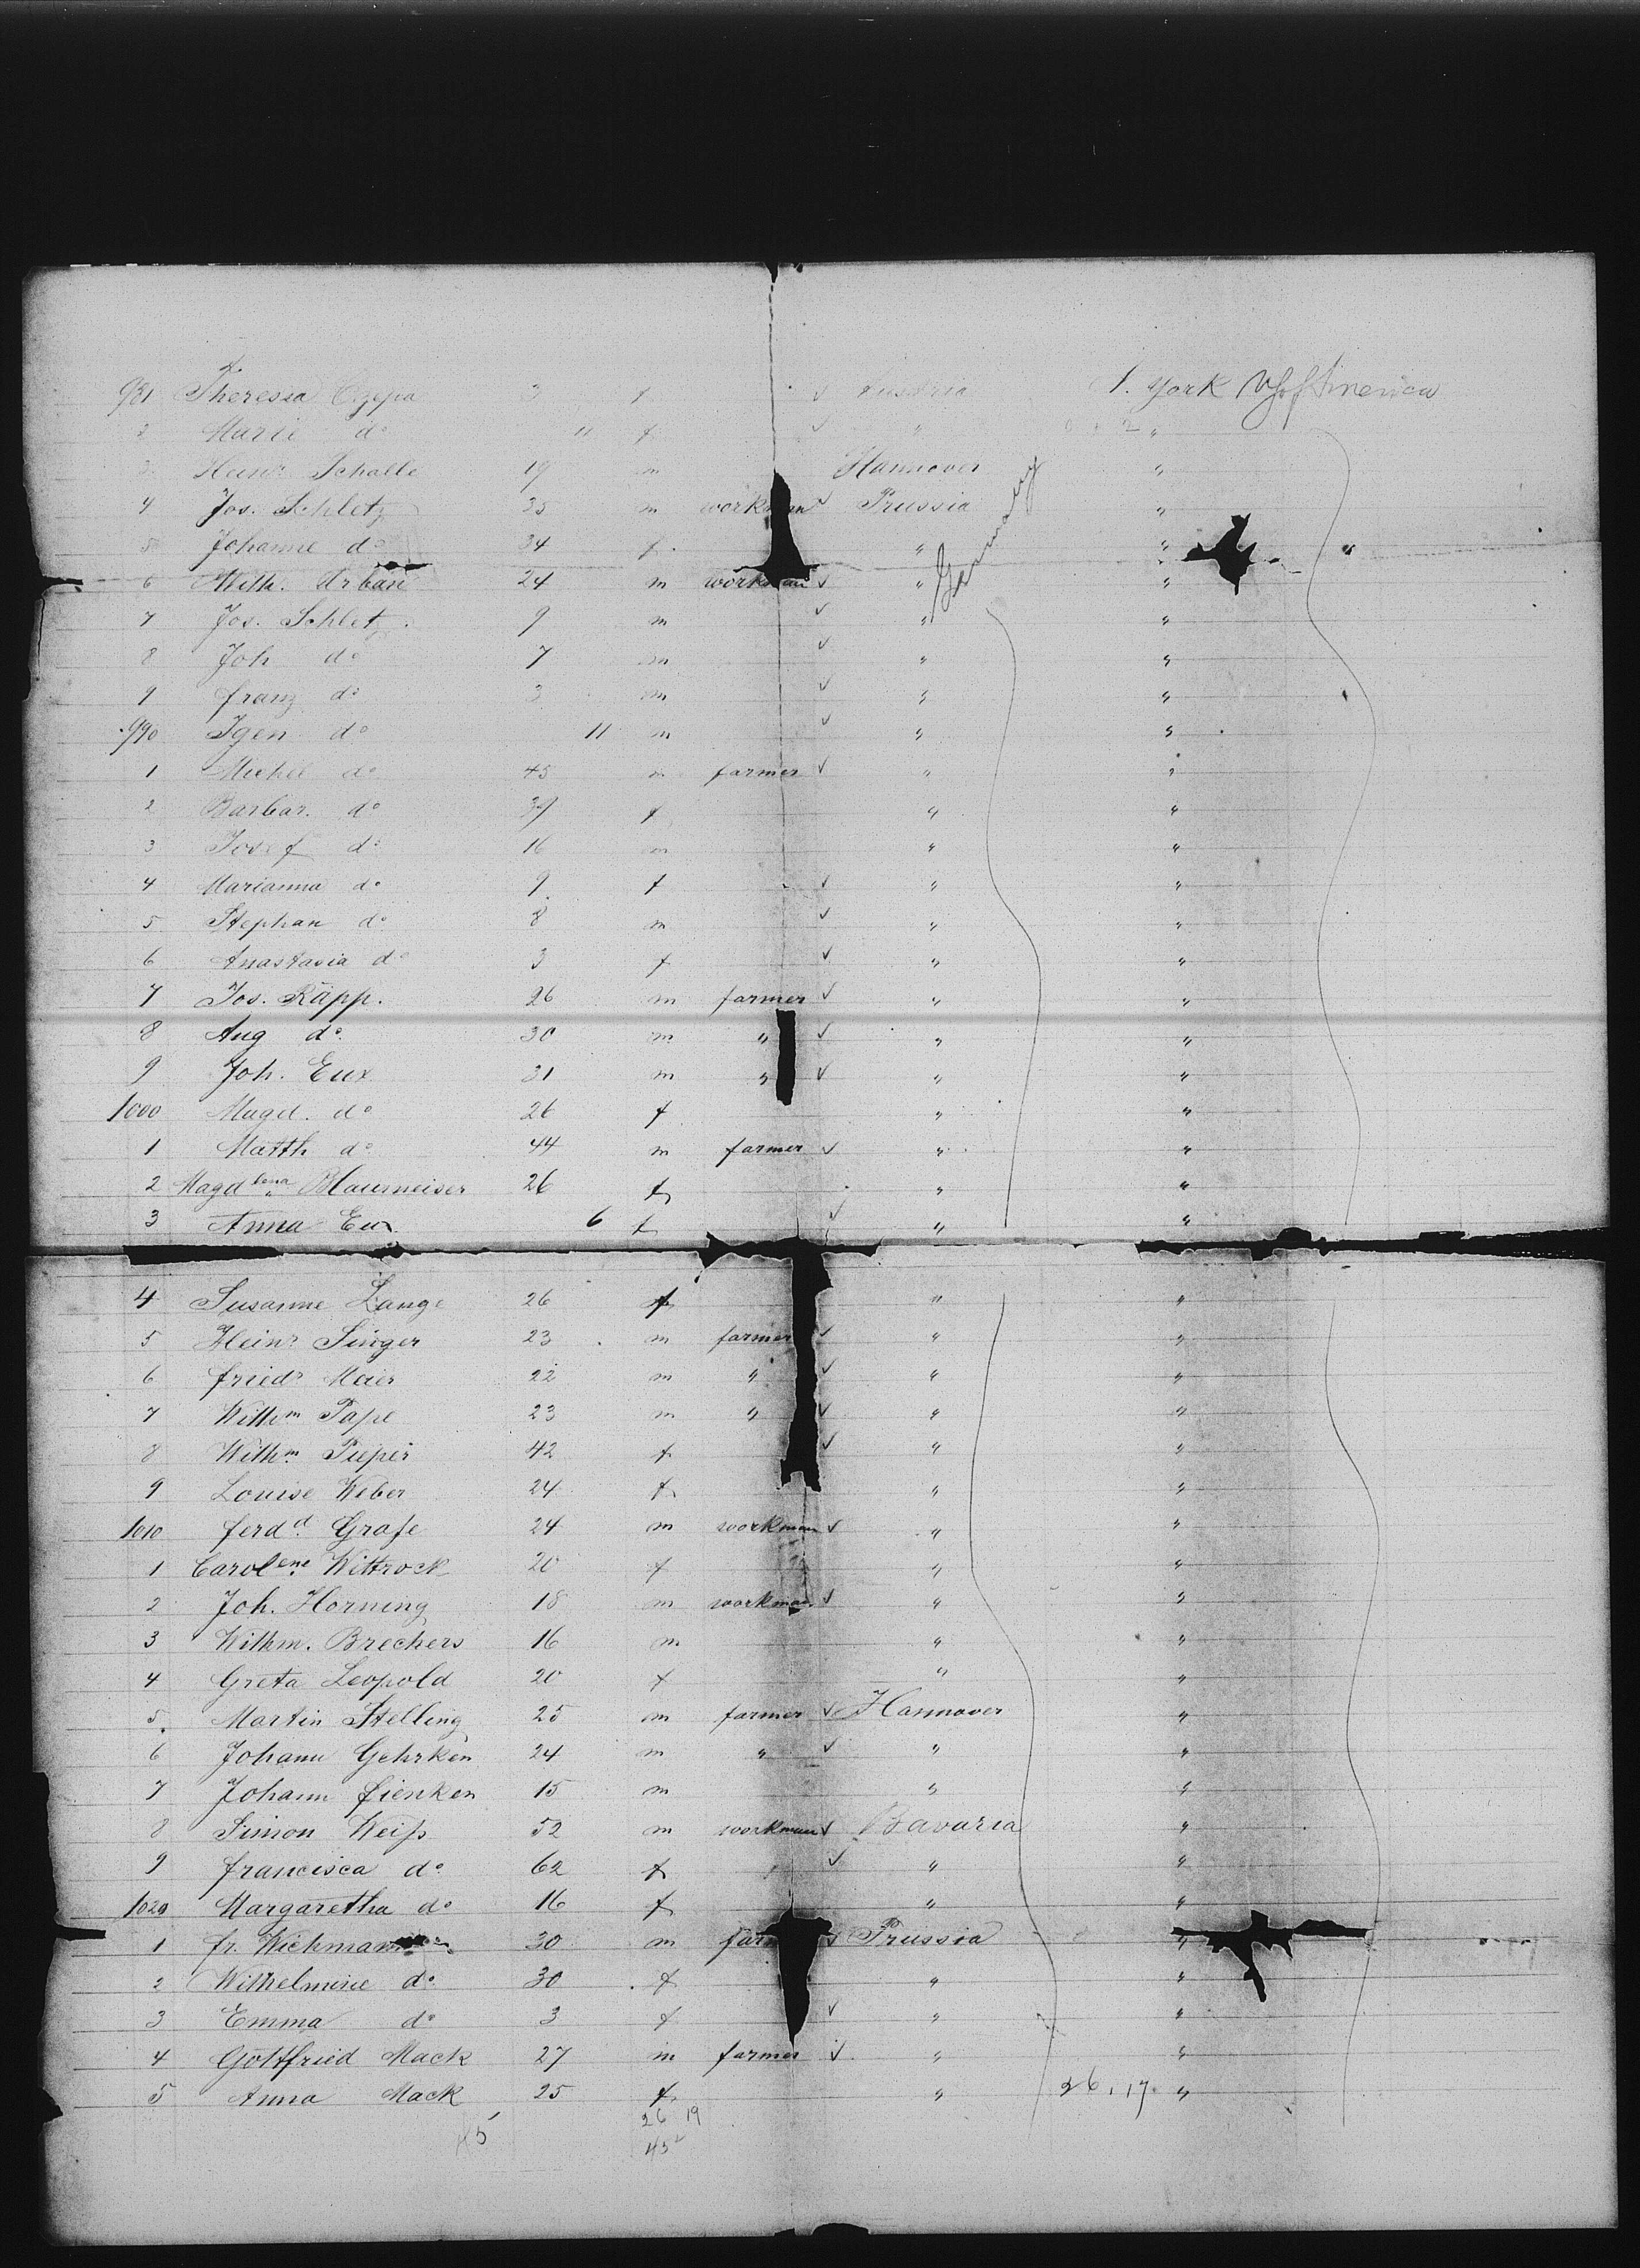 981 Theressa Czepa 3 f ✓ Austria N. York US of America
2 Marie do 11 f ✓ " "
3 Heinr Schalle 19 m Hannover "
4 Jos. Schletz 35 m workman ✓ Prussia "
5 Johanne do 34 f " "
Germany
6 Wilh. Urban 24 m workman ✓ " "
7 Jos. Schletz 9 m ✓ " "
8 Joh do 7 m ✓ " "
9 franz do 3 m ✓ " "
990 Igen do 11 m ✓ " "
1 Michel do 45 m farmer ✓ " "
2 Barbar. do 39 f " "
3 Josef do 16 m " "
4 Marianna do 9 f ✓ " "
5 Stephan do 8 m ✓ " "
6 Anastasia do 3 f ✓ " "
7 Jos. Räpp. 26 m farmer ✓ " "
8 Aug do 30 m " ✓ " "
9 Joh. Eux 31 m " ✓ " "
1000 Magd. do 26 f " "
1 Matth do 44 m farmer ✓ " "
2 Magdlena Blaumeiser 26 f " "
3 Anna Eux 6 f ✓ " "
4 Susanne Lange 26 f " "
5 Heinr Singer 23 m farmer ✓ " "
6 friedr Meier 22 m " ✓ " "
7 Wilhm Pape 23 m " ✓ " "
8 Wilhm Pieper 42 f ✓ " "
9 Louise Weber 24 f " "
1010 ferdd Grafe 24 m workman ✓ " "
1 Carolene Wittrock 20 f " "
2 Joh. Horning 18 m workman ✓ " "
3 Wilhm. Brechers 16 m " "
4 Greta Leopold 20 f " "
5 Martin Stelling 25 m farmer ✓ Hannover "
6 Johann Gehrken 24 m " ✓ " "
7 Johann fienken 15 m " "
8 Simon Weiß 52 m workman ✓ Bavaria "
9 francisca do 62 f ✓ " "
1020 Margaretha do 16 f " "
1 fr. Wickmann 30 m far ✓ Prussia "
2 Wilhelmine do 30 f " "
3 Emma do 3 f ✓ " "
4 Gottfried Mack 27 m farmer ✓ " "
5 Anna Mack 25 f " 26,17 "
26 19
45 45